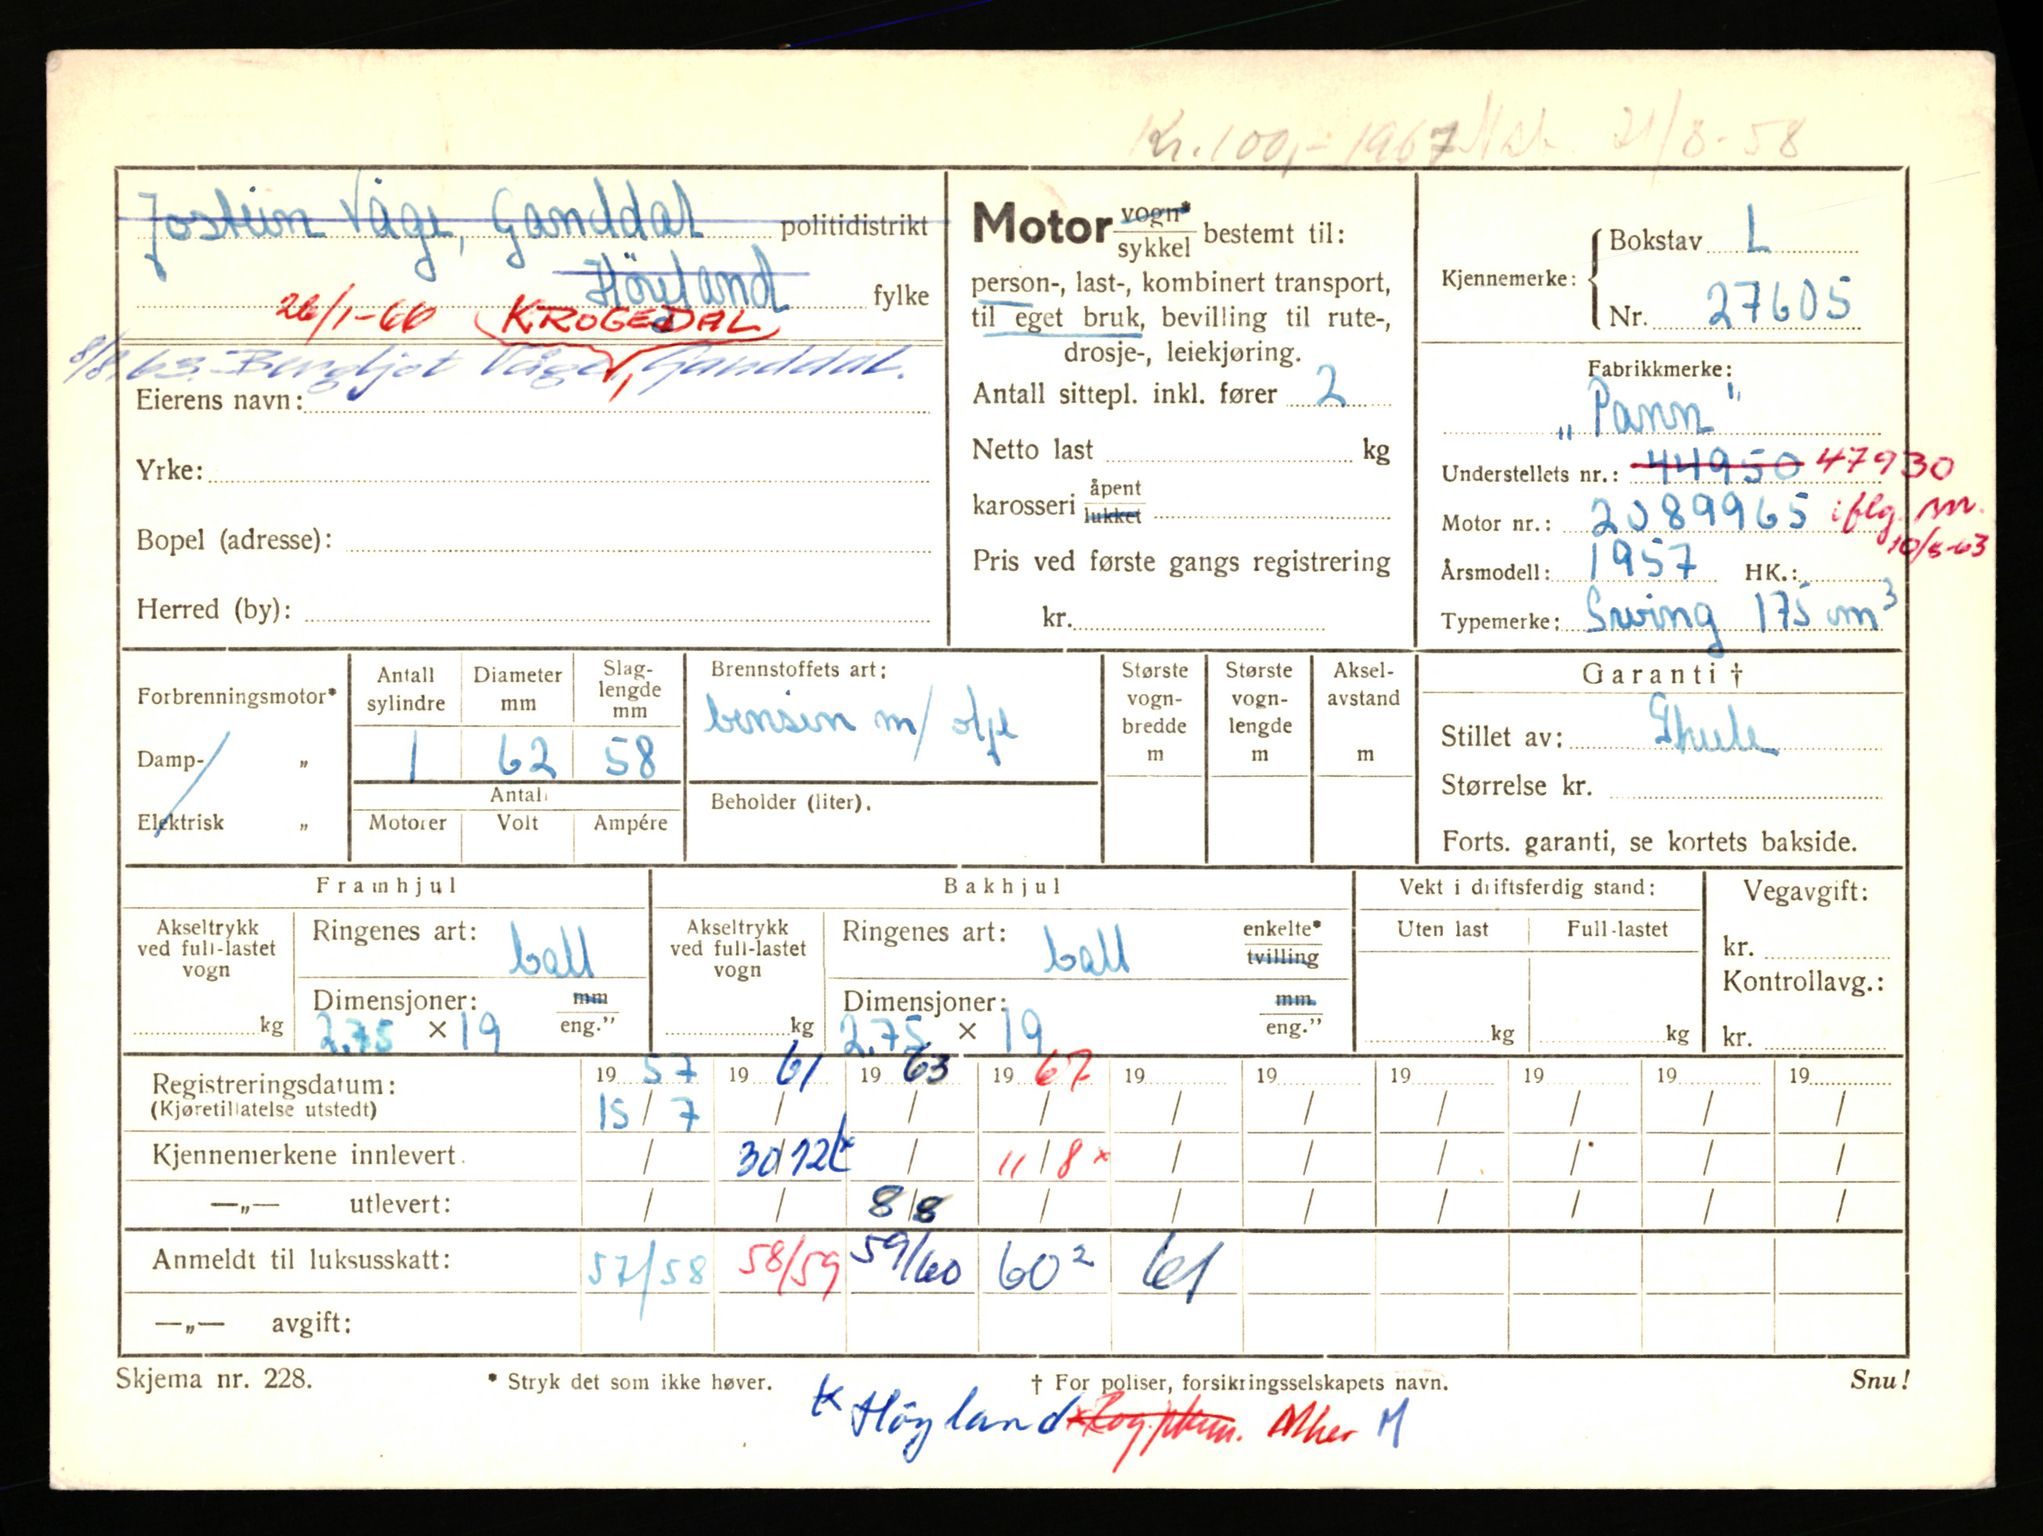 Kr. 100,- 1967 21/8-58
Jostein Våge, Ganddal politidistrikt
Höyland fylke
26/1-60 (KROGEDAL)
8/8 63. Bergljot Våge, Ganddal.
Eierens navn:
Yrke:
Bopel (adresse):
Herred (by):
Motor vogn* sykkel bestemt til:
person-, last-, kombinert transport,
til eget bruk, bevilling til rute-,
drosje-, leiekjøring.
Antall sittepl. inkl. fører 2
Netto last kg
karosseri åpent lukket
Pris ved første gangs registrering
kr.
Kjennemerke: Bokstav L
Nr. 27605
Fabrikkmerke:
„Pann"
Understellets nr.: 44950 47930
Motor nr.: 2089965 iflg. m.
10/5-63
Årsmodell: 1957 HK.:
Typemerke: Swing 175 cm³
Forbrenningsmotor*
Damp- „
Elektrisk „
Antall sylindre
1
Diameter mm
62
Slag-lengde mm
58
Antall
Motorer Volt Ampére
Brennstoffets art:
bensin m/ olje
Beholder (liter).
Største vogn-bredde m
Største vogn-lengde m
Aksel-avstand m
Garanti †
Stillet av: Thule
Størrelse kr.
Forts. garanti, se kortets bakside.
Framhjul
Akseltrykk ved full-lastet vogn
kg
Ringenes art: ball
Dimensjoner: mm
2.75 × 19 eng.”
Bakhjul
Akseltrykk ved full-lastet vogn
kg
Ringenes art: ball enkelte* tvilling
Dimensjoner: mm.
2.75 × 19 eng.”
Vekt i driftsferdig stand:
Uten last Full-lastet
kg kg
Vegavgift:
kr.
Kontrollavg.:
kr.
Registreringsdatum: 19 57 19 61 19 63 19 67 19 19 19 19 19 19
(Kjøretillatelse utstedt) 15 / 7 / / / / / / / / /
Kjennemerkene innlevert. / 30/12 / 11/8 × / / / / / /
—„— utlevert: / / 8/8 / / / / / / /
Anmeldt til luksusskatt: 57/58 58/59 59/60 60² 61
—„— avgift:
Skjema nr. 228.
* Stryk det som ikke høver.
† For poliser, forsikringsselskapets navn.
Snu!
Höyland